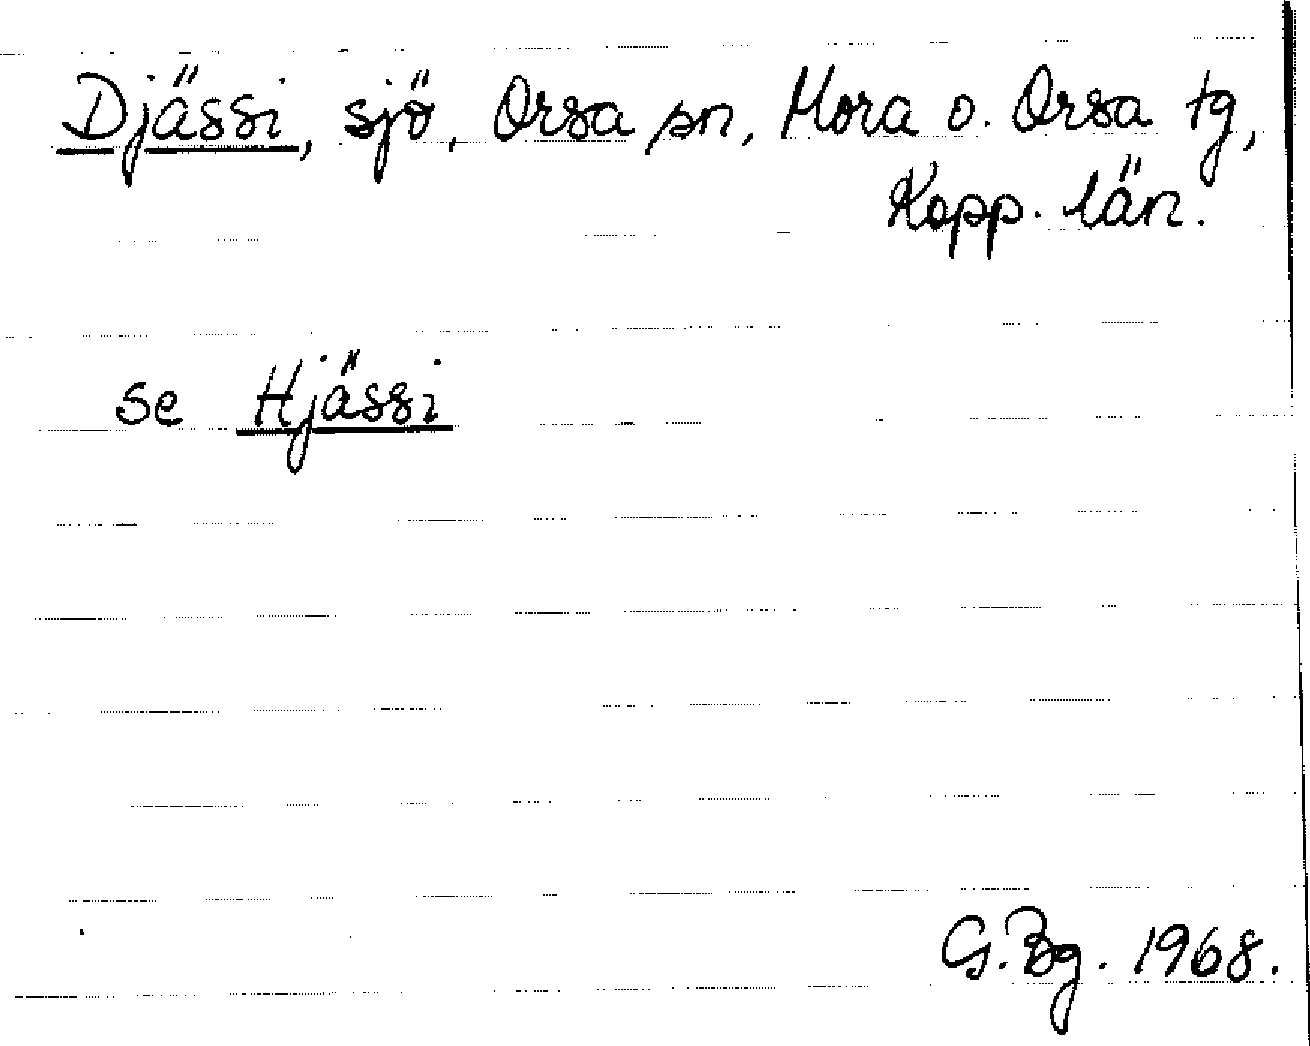 Djässi, sjö, Orsa sn, Mora o. Orsa tg,
Kopp. län.
se Hjässi
G. Bg. 1968.